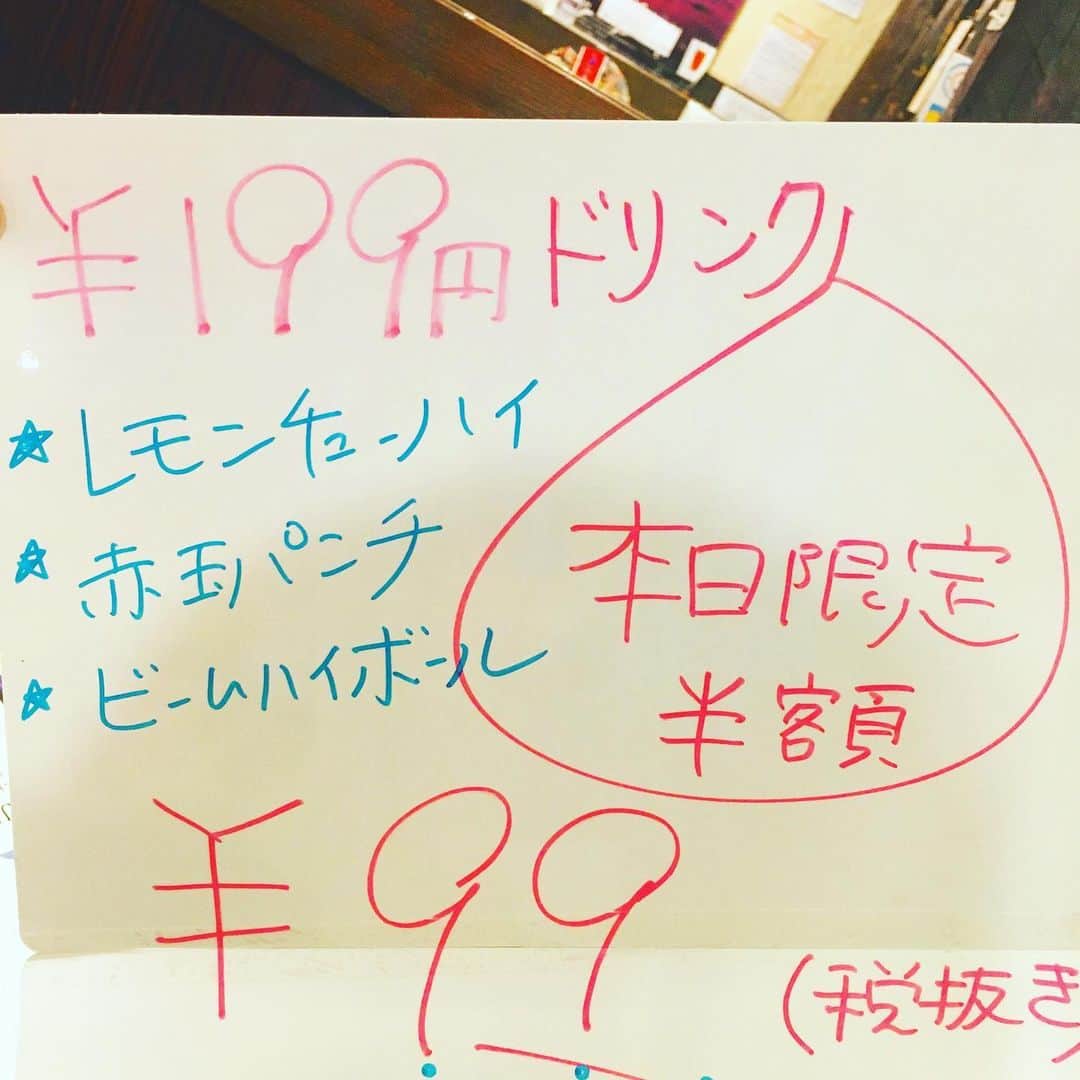 ¥199円ドリンク
★レモンチューハイ
★赤玉パンチ
★ビームハイボール
本日限定
半額
¥99
(税抜き)